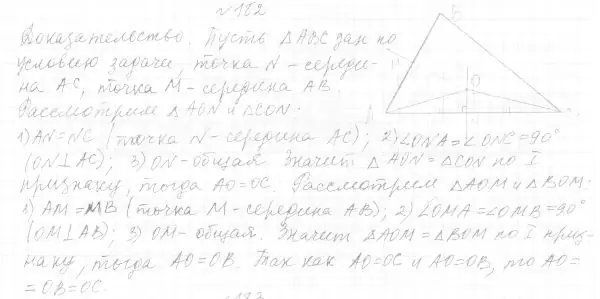 №182
Доказательство. Пусть △ABC дан по
условию задачи, точка N - середи-
на AC, точка M - середина AB.
Рассмотрим △AON и △CON:
1) AN = NC (точка N - середина AC); 2) ∠ONA = ∠ONC = 90°
(ON⊥AC); 3) ON - общая. Значит △AON = △CON по I
признаку, тогда AO = OC. Рассмотрим △AOM и △BOM:
1) AM = MB (точка M - середина AB); 2) ∠OMA = ∠OMB = 90°
(OM⊥AB); 3) OM - общая. Значит △AOM = △BOM по I приз-
наку, тогда AO = OB. Так как AO = OC и AO = OB, то AO =
= OB = OC.
B
O
A